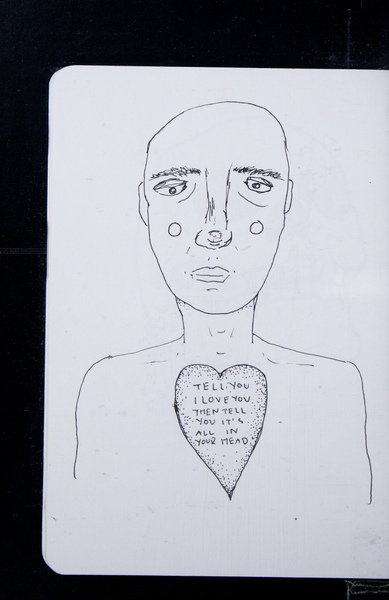 TELL YOU
I LOVE YOU
THEN TELL
YOU IT'S
ALL IN
YOUR HEAD